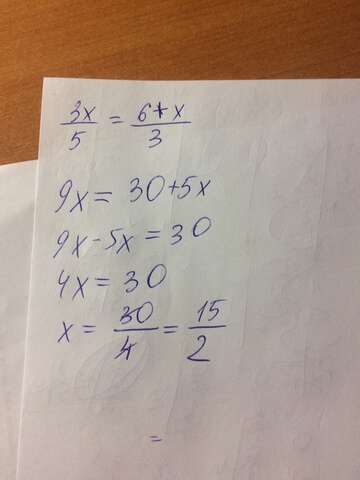 3x/5 = 6+x/3
9x = 30+5x
9x-5x = 30
4x = 30
x = 30/4 = 15/2
=